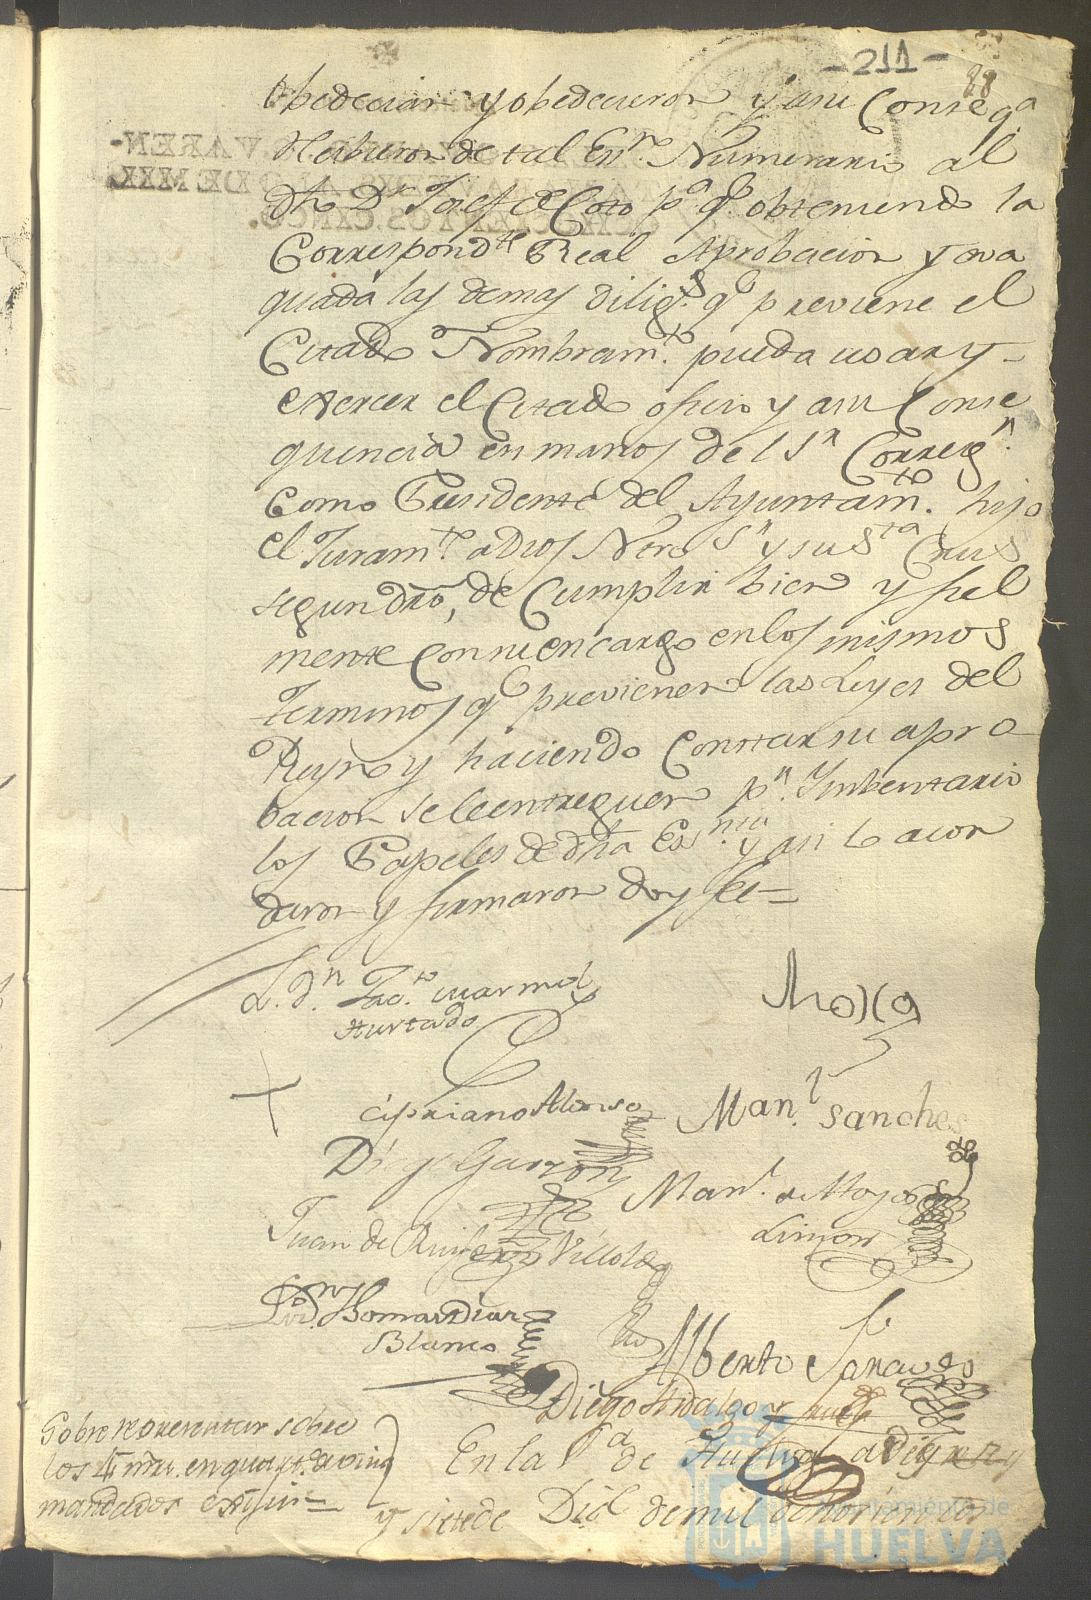 -211-
88
obedecian y obedecieron y en su Conseq.a
Hubieron de tal Esn.no Numerario al
dho D.n Josef de Coto p.a q.e obteniendo la
Correspond.te Real Aprobacion y eva
quada las demas dilig.s q.e previene el
Citado Nombram.to pueda usar y
exercer el Citado oficio y en su Conse
quencia en manos del S.r Correg.r
Como Presidente del Ayuntam.to hizo
el Juram.to a Dios Ntro S.r y su S.ta Crus
segun dro, de Cumplir bien y fiel
mente Con su encargo en los mismos
terminos q.e previenen las Leyes del
Reyno y haciendo Constar su apro
bacion se le entreguen p.r Ymbentario
los Papeles de dha Es.nia y asi lo acor
daron y firmaron doy fe=
L. d.n Jac.to Marmol
Hurtado
Moxa
Cipriano Alonso
Man.l Sanches
Diego Garzon
Man.l de Moya
Limon
Juan de
Thomas Diaz
Blanco
Alberto
Diego Hidalgo y
Sobre representar sobre
los 4 mrs. en quart. de vino
mandados exijir=
En la V.a de Huelva a Diez y
y siete de Dic.e de mil ochocientos
Ayuntamiento de
HUELVA